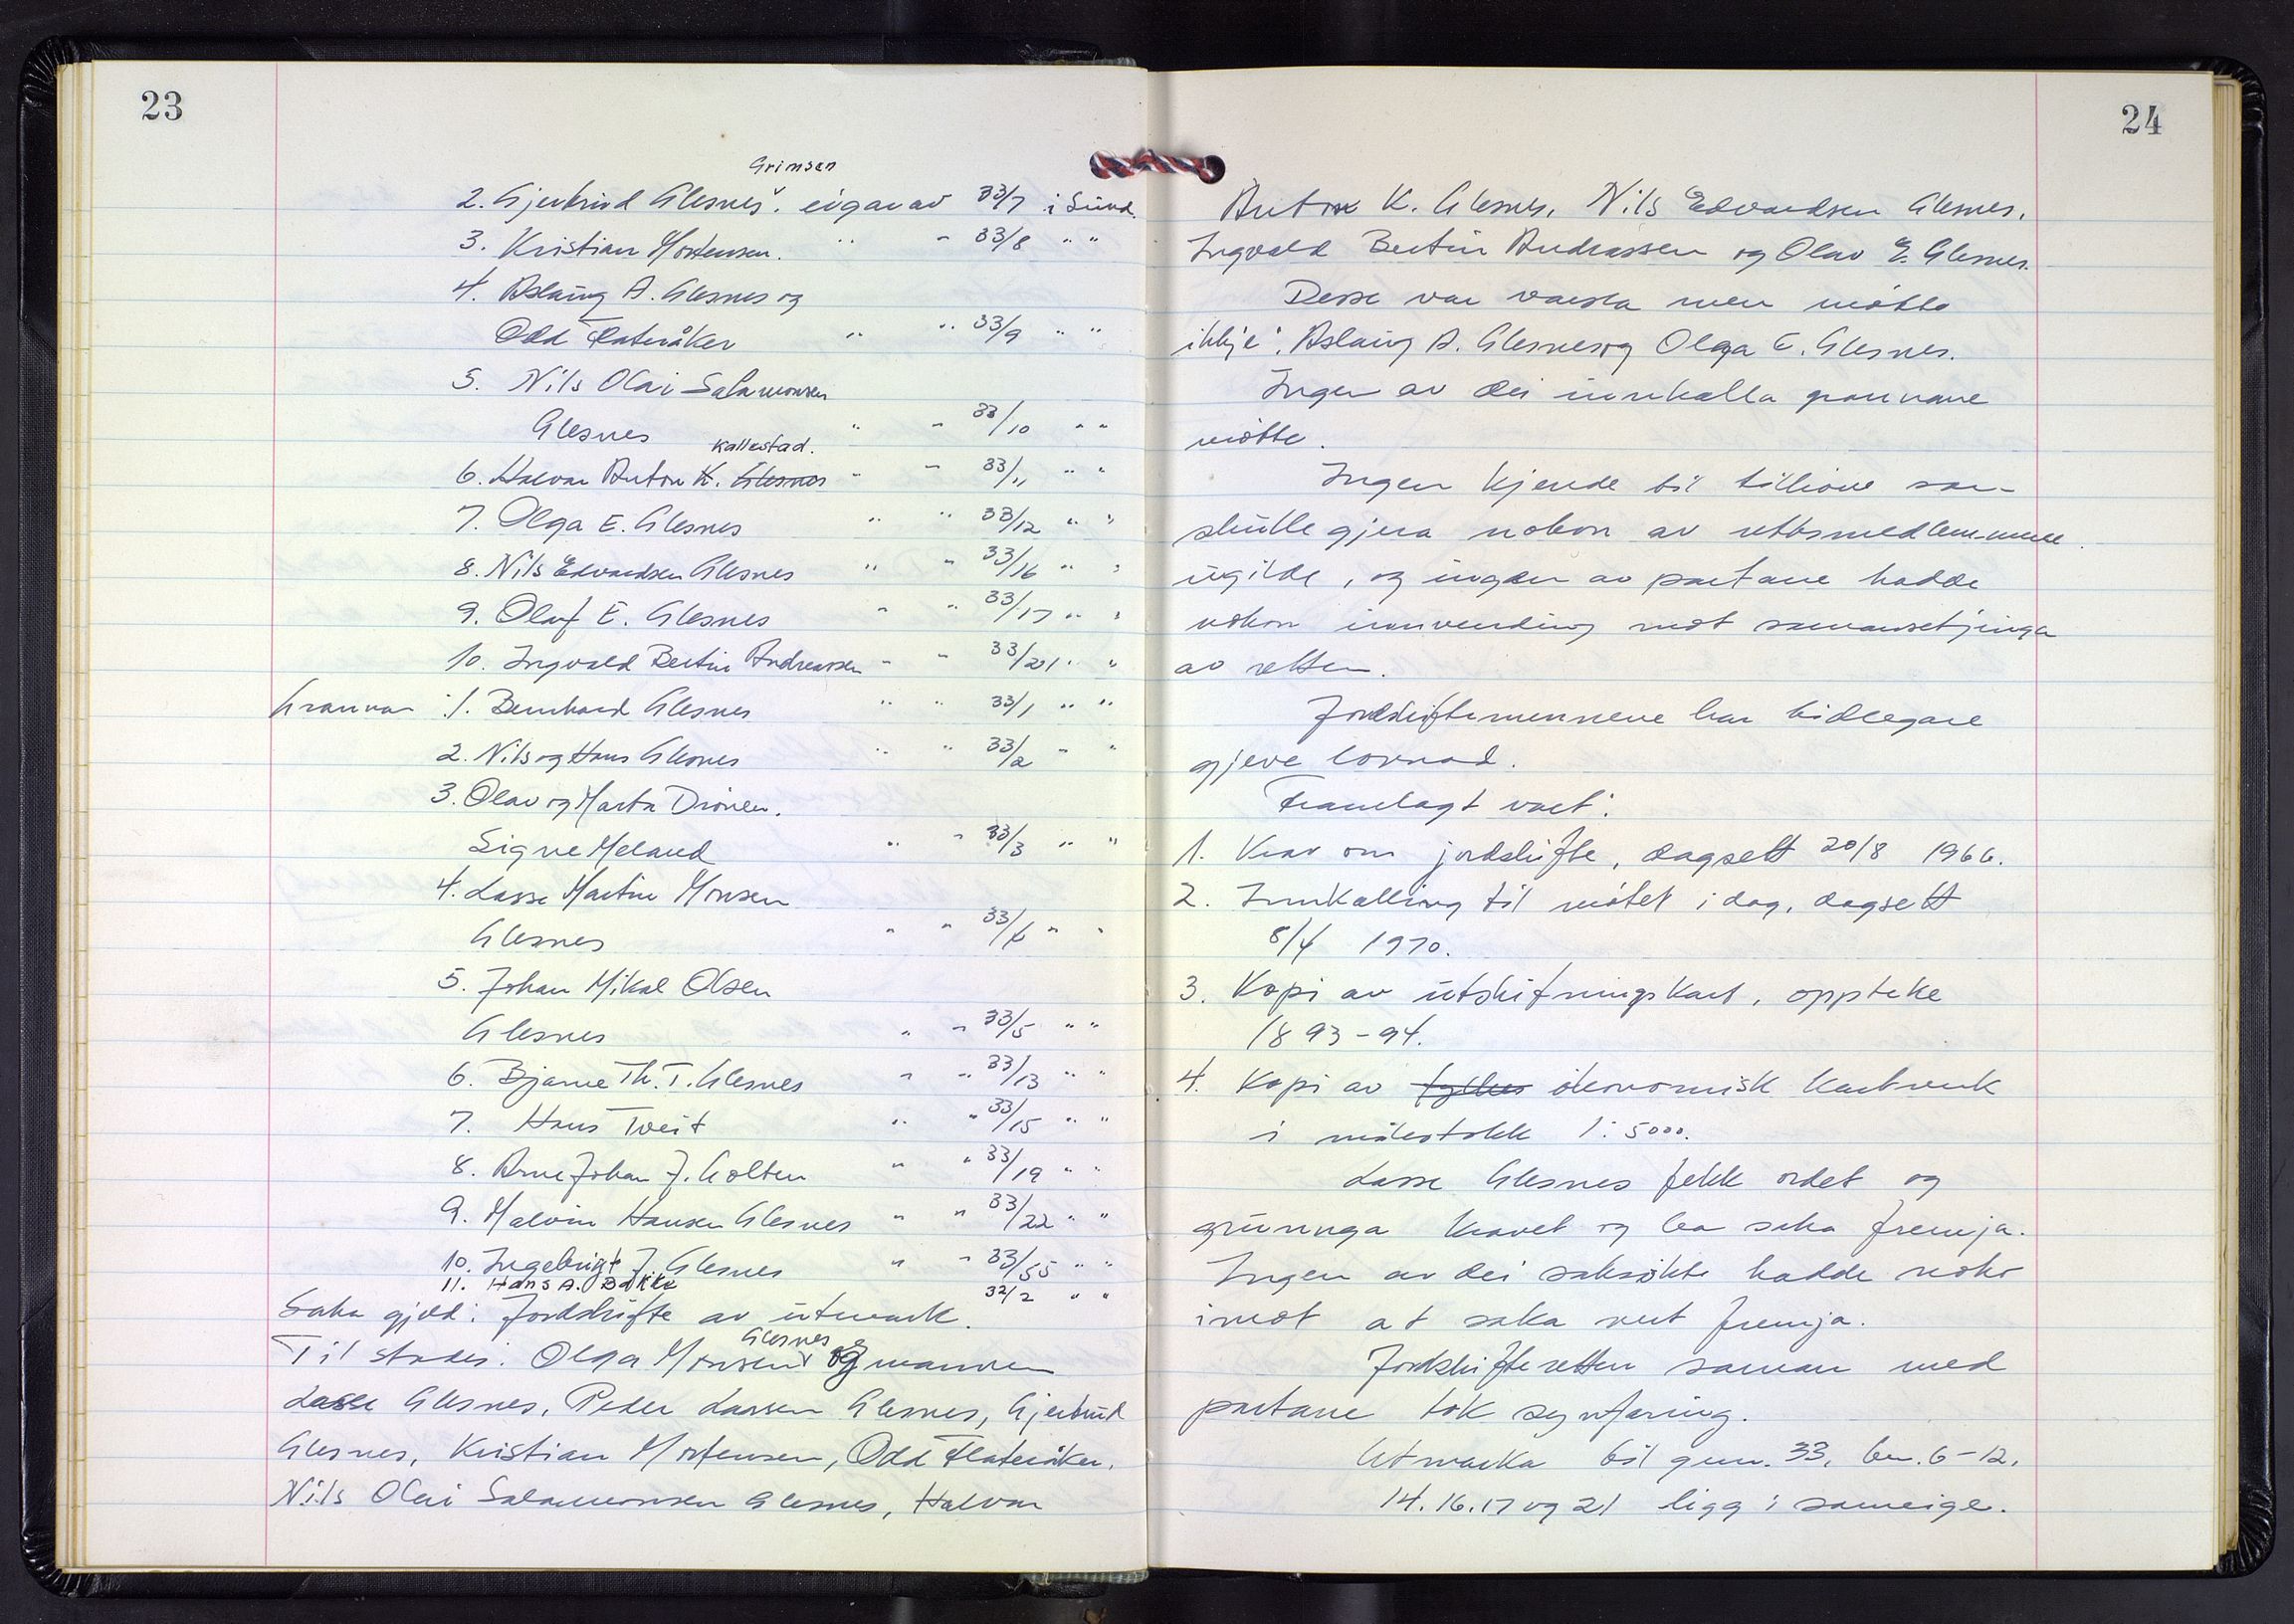 23
Grimsen
2. Gjertrud Glesnes ̌. eigar av 33/7 i Sund.
3. Kristian Mortensen. " " 33/8 " "
4. Aslaug A. Glesnes og
Odd Flateråker " " 33/9 " "
5. Nils Olai Salamonsen
Glesnes " " 33/10 " "
Kallestad.
6. Halvar Anton K. Glesnes " " 33/11 " "
7. Olga E. Glesnes " " 33/12 " "
8. Nils Edvardsen Glesnes " " 33/16 " "
9. Olaf E. Glesnes " " 33/17 " "
10. Ingvald Bertin Andreassen " " 33/21 " "
Grannar: 1. Bernhard Glesnes " " 33/1 " "
2. Nils og Hans Glesnes " " 33/2 " "
3. Olav og Marta Drönen.
Signe Meland " " 33/3 " "
4. Lasse Martin Monsen
Glesnes " " 33/4 " "
5. Johan Mikal Olsen
Glesnes " " 33/5 " "
6. Bjarne Th. T. Glesnes " " 33/13 " "
7. Hans Tveit " " 33/15 " "
8. Arne Johan J. Golten " " 33/19 " "
9. Malvin Hansen Glesnes " " 33/22 " "
10. Ingebrigt J. Glesnes " " 33/55 " "
11. Hans A. Bakke 32/2 " "
Saka gjeld: Jordskifte av utmark.
Glesnes
Til stades: Olga Monsen og mannen
Lasse Glesnes, Peder Larsen Glesnes, Gjertrud
Glesnes, Kristian Mortensen, Odd Flateråker,
Nils Olai Salamonsen Glesnes, Halvar
24
Anton K. Glesnes, Nils Edvardsen Glesnes,
Ingvald Bertin Andrassen og Olav E. Glesnes.
Desse var varsla men møtte
ikkje: Aslaug A. Glesnes og Olga E. Glesnes.
Ingen av dei innkalla grannane
møtte.
Ingen kjende til tilhöve som
skulle gjera nokon av rettsmedlemmene
ugilde, og ingen av partane hadde
nokon innvending mot samansetjinga
av retten.
Jordskiftemennene har tidlegare
gjeve lovnad.
Framlagt vart:
1. Krav om jordskifte, dagsett 20/8 1966.
2. Innkalling til møtet i dag, dagsett
8/4 1970.
3. Kopi av utskiftningskart, oppteke
1893-94.
4. Kopi av fylkes ökonomisk kartverk
i målestokk 1:5000.
Lasse Glesnes fekk ordet og
grunnga kravet og ba saka fremja.
Ingen av dei saksökte hadde noko
imot at saka vert fremja.
Jordskifteretten saman med
partane tok synfaring.
Utmarka til gnr. 33, bnr. 6-12,
14, 16, 17 og 21 ligg i sameige.